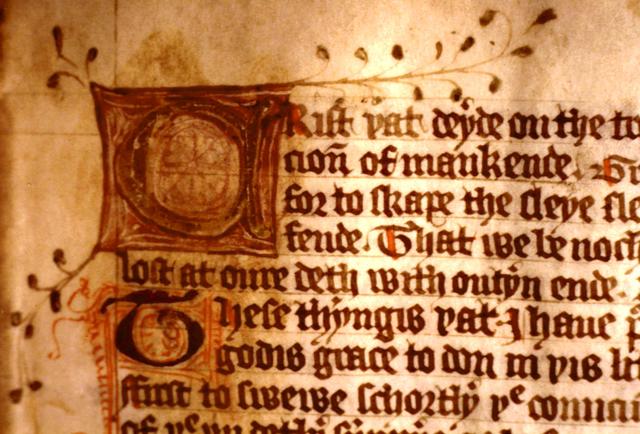 CRist yat deyde on the
cioñ of mankende.
for to skape the sleye
fende. That we be noch
lost at oure deth with outyn ende.
These thyngis yat I haue
godis grace to don in yis
ffirst to swewe schortly yᵉ
of yᵉ